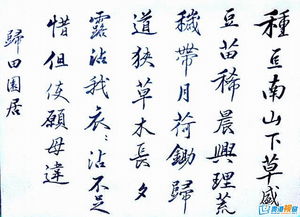 種豆南山下草盛
豆苗稀晨興理荒
穢帶月荷鋤歸
道狹草木長夕
露沾我衣：沾不足
惜但使願毋違
歸田園居